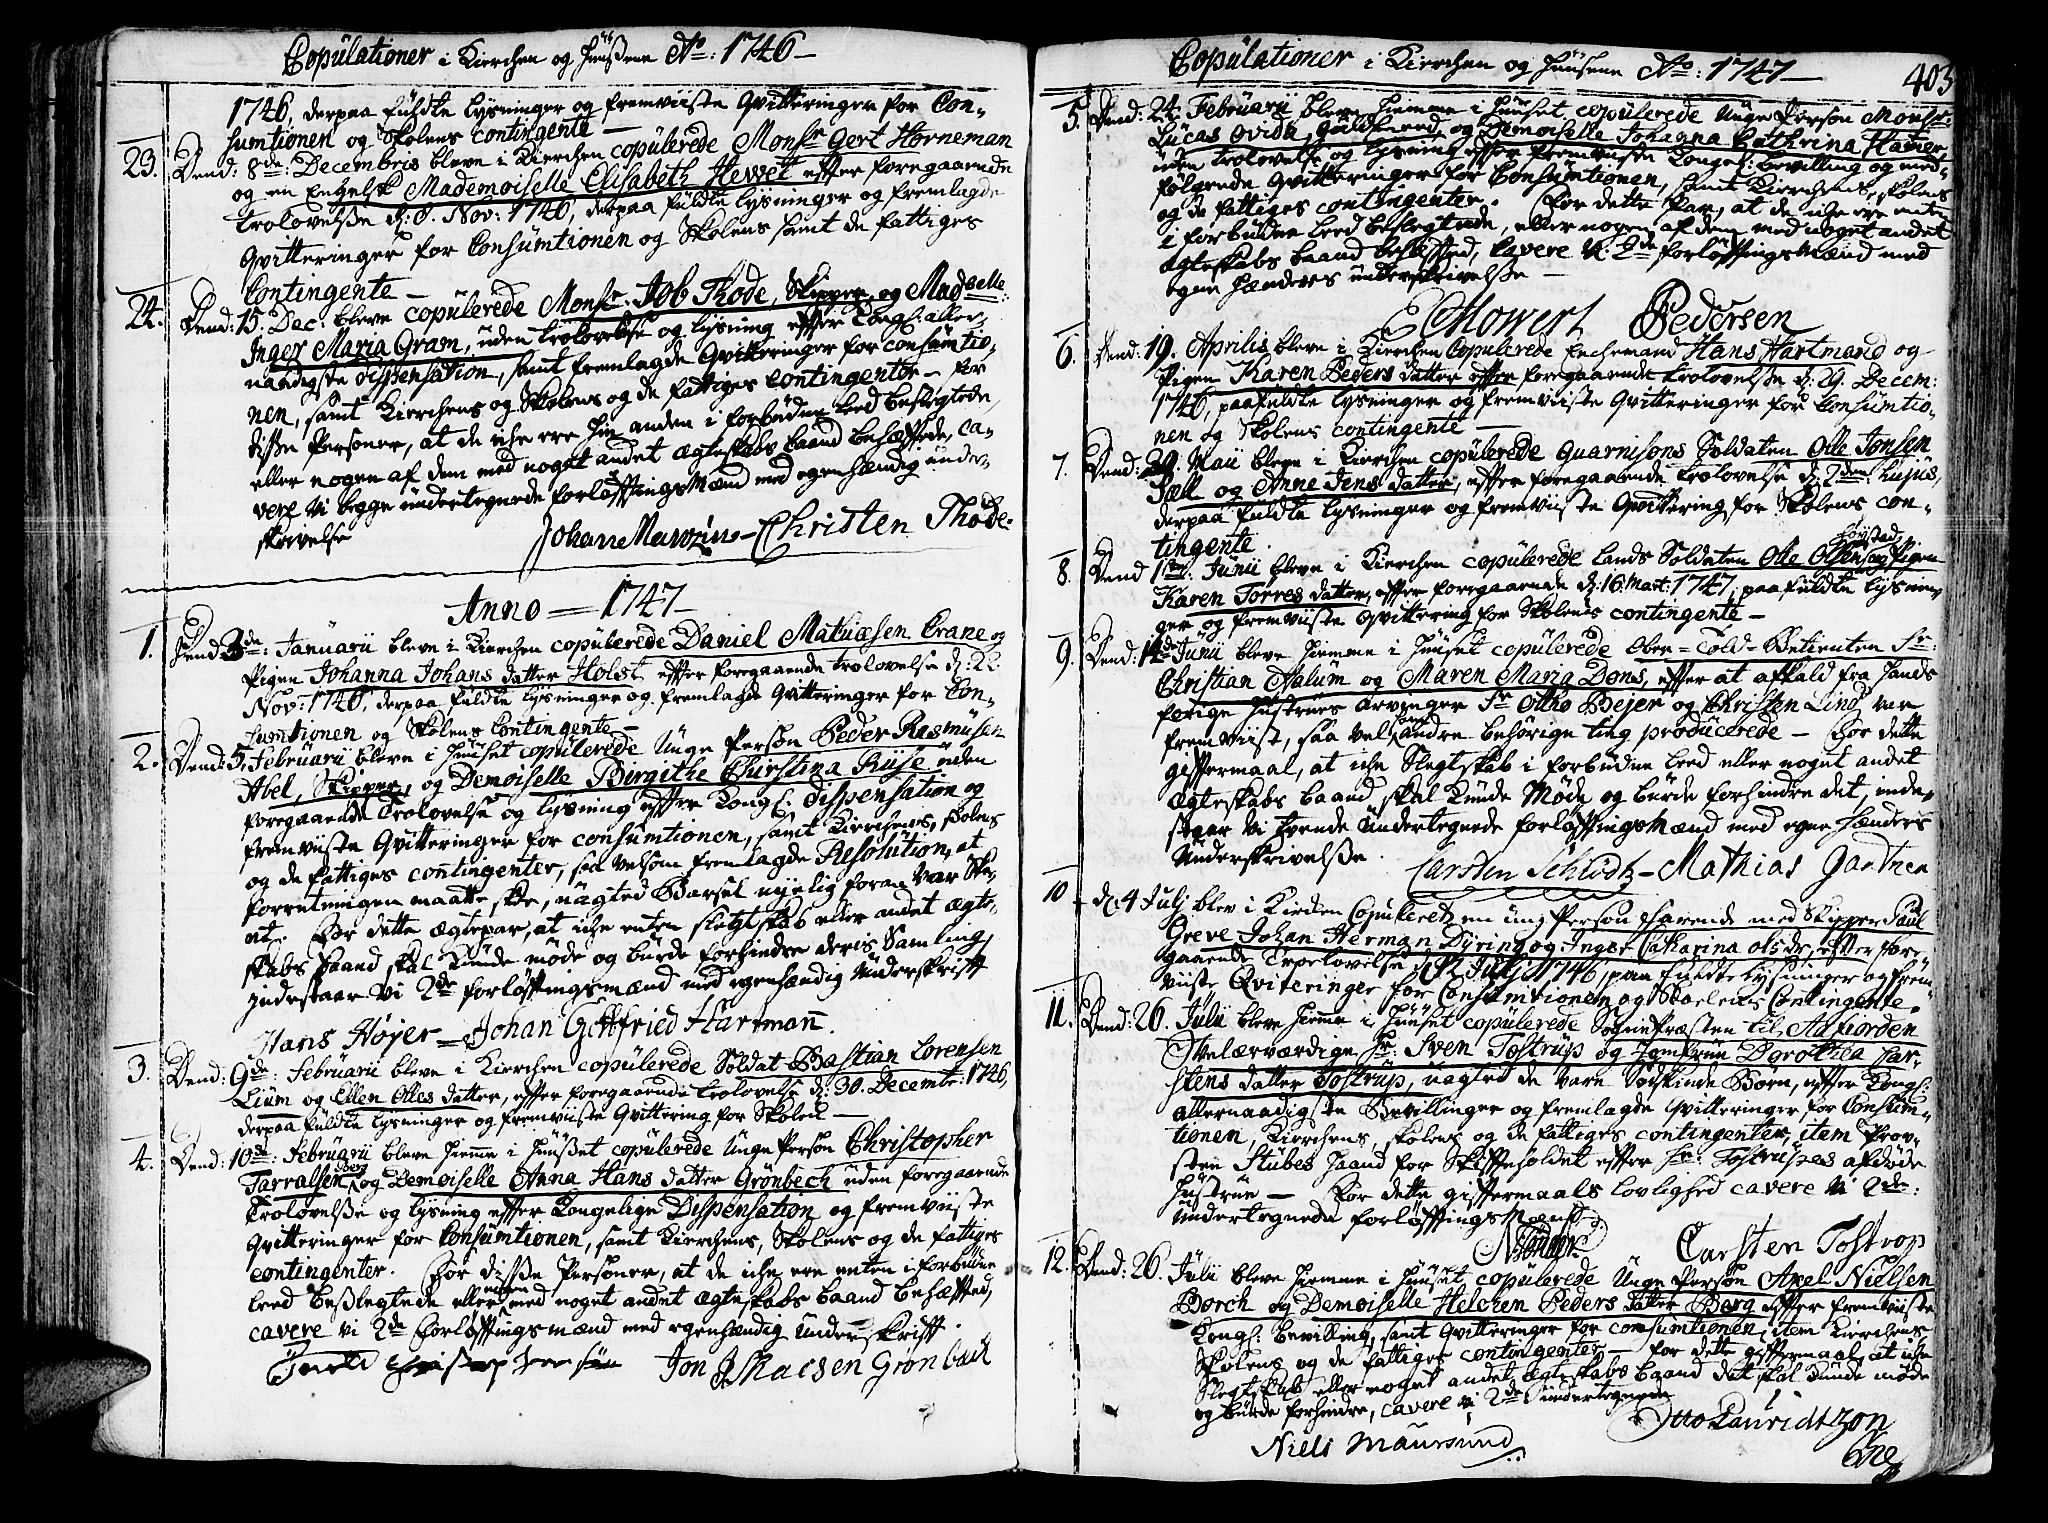 Copulationer i Kierchen og Huusene Ao: 1746
1746, derpaa fuldte lysninger og fremviiste Qvitteringer for Con-
sumtionen og Skolens Contingente
23. Dend: 8de: Decembris bleve i Kierchen copulerede Monsr Gert Horneman
og en Engelsk Mademoiselle Elisabeth Hewet efter foregaaende
trolovelse d: 8. Nov: 1746, derpaa fuldte lysninger og fremlagde
Qvitteringer for Consumtionen og Skolens samt de fattiges
Contingente
24. Dend: 15. Dec: bleve copulerede Monsr. Job Thode, Skipper, og Madselle:
Inger Maria Gram, uden trolovelse og lysning efter Kongl: aller-
naadigste dispensation, samt fremlagde Qvitteringer for Consumtio-
nen, samt Kierchens og Skolens og de fattiges contingenter - for
disse Personer, at de iche ere hin anden i forbuden leed beslegtede,
eller nogen af dem med noget andet ægteskabs baand behæftede, ca-
vere vi begge undertegnede forløftningsmænd med egenhændig under-
skrivelse
Christen Thode
Anno 1747
1. Dend 3de: Januarii bleve i Kierchen copulerede Daniel Mathiæsen Crane og
Pigen Johanna Johans datter Holst efter foregaaende trolovelse d: 22
Nov: 1746, derpaa fuldte lysninger og fremlagde Qvitteringer for Con-
sumtionen og Skolens Contingente
2. Dend: 5. Februarii bleve i Huuset copulerede Unge Person Peder Rasmusen
Abel, Skipper, og Demoiselle Birgithe Christina Ruse uden
foregaaende Trolovelse og lysning efter Kongl: dispensation og
fremviiste Qvitteringer for consumtionen, samt Kierchens, Skolens
og de fattiges contingenter, saa velsom fremlagde Resolution, at
forretningen maatte skee, uagted Barsel nyelig foran var ske-
et. For dette ægtepar, at iche enten slegtskab eller andet ægte-
skabs baand skal kunde møde og burde forhindre deris Samling,
indestaar vi 2de forløftningsmænd med egenhændig Underskrift
Hans Høyer - Johan Gottfried Hartmann.
3. Dend: 9de: Februarii bleve i Kierchen copulerede Soldat Bastian Lorensen
Lium og Ellen Olles datter, efter foregaaende trolovelse d: 30. Decembr: 1746,
derpaa fuldte lysninger og fremviiste Qvittering for Skolen
4. Dend: 10de: Februarii bleve hiemme i Huuset copulerede Unge Person Christopher
Tarralsen Berg og Demoiselle Anna Hans datter Grønbech uden foregaaende
Trolovelse og lysning efter Kongelige Dispensation og fremviiste
Qvitteringer for Consumtionen, samt Kierchens, Skolens og de fattiges
contingenter. For disse Personer, at de iche ere enten i forbuden
leed beslegtede eller nogen med noget andet ægteskabs baand behæftted,
cavere vi 2de Forløftningsmænd med egenhændig Underskrift.
Jon Grønbech
Copulationer i Kierchen og Huusene Ao: 1747
403
5. Dend: 24. Februarii bleve hiemme i Huuset copulerede Unge Person Monsr:
Lucas Ovidi, Guldsmed og Demoiselle Johanna Cathrina Hamer
uden trolovelse og lysning efter fremviiste Kongel: bevilling og med-
følgende Qvitteringer for Consumtionen, samt Kierchens, Skolens
og de fattiges contingenter. For dette Par, at de iche ere enten
i forbuden leed beslegtede, eller nogen af dem med noget andet
ægteskabs baand behæfted, cavere vi 2de forløftningsmænd med
egne hænders underskrivelse
Mowert Pedersen
6. Dend: 19. Aprilis bleve i Kierchen Copulerede Enchemand Hans Hartmand og
Pigen Karen Peders datter efter foregaaende trolovelse d: 29. Decem:
1746, paafuldte lysninger og fremviiste Qvitteringer for Consumtio-
nen og Skolens contingente
7. Dend: 29. Maii bleve i Kierchen copulerede Guarnisons Soldaten Olle Jonsen
Sæll og Anne Jens datter, efter foregaaende trolovelse d: 2den hujus,
derpaa fuldte lysninger og fremviiste Qvittering for Skolens con-
tingente.
8. Dend 1ste: Junii bleve i Kierchen copulerede Lands Soldaten Olle Olsen og Pigen
Karen Torres datter, efter foregaaende d: 16 Mart: 1747, paafuldte lysnin-
ger og fremviiste Qvittering for Skolens contingente
9. Dend: 14de Junii bleve hiemme i Huuset copulerede Ober-Told-Betienten Sr:
Christian Aalum og Maren Maria Dons, efter at affald fra hands
forige Hustrues arvinger Sr Otto Bejer og Christen Lind var
fremviist, saa vel som andre behørige ting producerede - For dette
giftermaal, at iche Slegtskab i forbudne leed eller noget andet
ægteskabs baand skal kunde møde og burde forhindre det, inde-
staar vi tvende Undertegnede forløftningsmænd med egne hænders
Underskrivelse.
Carsten Schiødtz - Mathias Gartner
10 d. 4 Julj blev i Kircken Copuleret en ung Person farende med Skipper Paul
Greve Johan Herman Dyring og Inger Catharina olsdr, efter fore-
gaaende Troelovelse, d. 12 Julj 1746, paa fuldte lysninger og frem-
viiste Qviteringer for Consumtionem og Skoelens Contingente.
11. Dend: 26. Julii bleve hiemme i Huuset copulerede Sogne Præsten til Aafiorden
Velærværdige Hr. Sven Tostrup og Jomfrue Dorothea Car-
stens datter Tostrup, uagted de vare Sødskinde Børn, efter Kongl:
allernaadigste Bevillinger og fremlagde Qvitteringer for Consum-
tionen, Kierchens, Skolens og de fattiges contingenter, item Prov-
sten Stubes haand for Skifteholdet efter Hr: Tostrupes afdøde
Hustrue - For dette giftermaals lovlighed cavere vi 2de:
Undertegnede forløftningsmænd.
Carsten Tostrop
12. Dend: 26. Julii bleve hiemme i Huuset copulerede Unge Person Axel Nielsen
Borch og Demoiselle Helchen Peders datter Berg efter fremviiste
Kongl: bevilling, samt Qvitteringer for consumtionen, item Kierchens
Skolens og de fattiges contingenter - for dette giftermaal, at iche
Slegtskab eller noget andet ægteskabs baand det skal kunde møde
og burde forhindre, cavere vi 2de undertegnede
Otto Lauridtzon
Niels Maursund
Ene